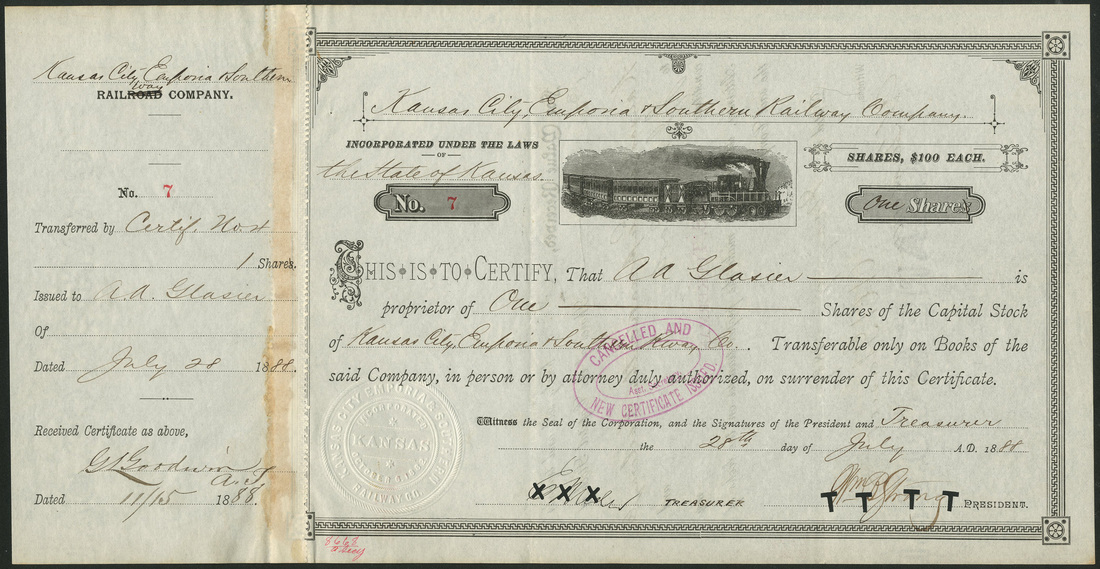 Kansas City Emporia & Southern
way
RAILROAD COMPANY.
No. 7
Transferred by Certif. No. 4
1 Shares.
Issued to A. A. Glasier
Of
Dated July 28 1888.
Received Certificate as above,
G L Goodwin
Dated 11/15 1888.
Kansas City, Emporia & Southern Railway Company.
INCORPORATED UNDER THE LAWS
OF
the State of Kansas.
No. 7
SHARES, $100 EACH.
One Shares
THIS IS TO CERTIFY, That A A Glasier is
proprietor of One Shares of the Capital Stock
of Kansas City, Emporia & Southern Rway Co. . Transferable only on Books of the
said Company, in person or by attorney duly authorized, on surrender of this Certificate.
CANCELLED AND
NEW CERTIFICATE ISSUED.
KANSAS CITY EMPORIA & SOUTHERN
KANSAS
RAILWAY CO.
Witness the Seal of the Corporation, and the Signatures of the President and Treasurer
the 28th day of July A.D. 1888
X X X
TREASURER
Wm B Strong
T T T T
PRESIDENT.
8668